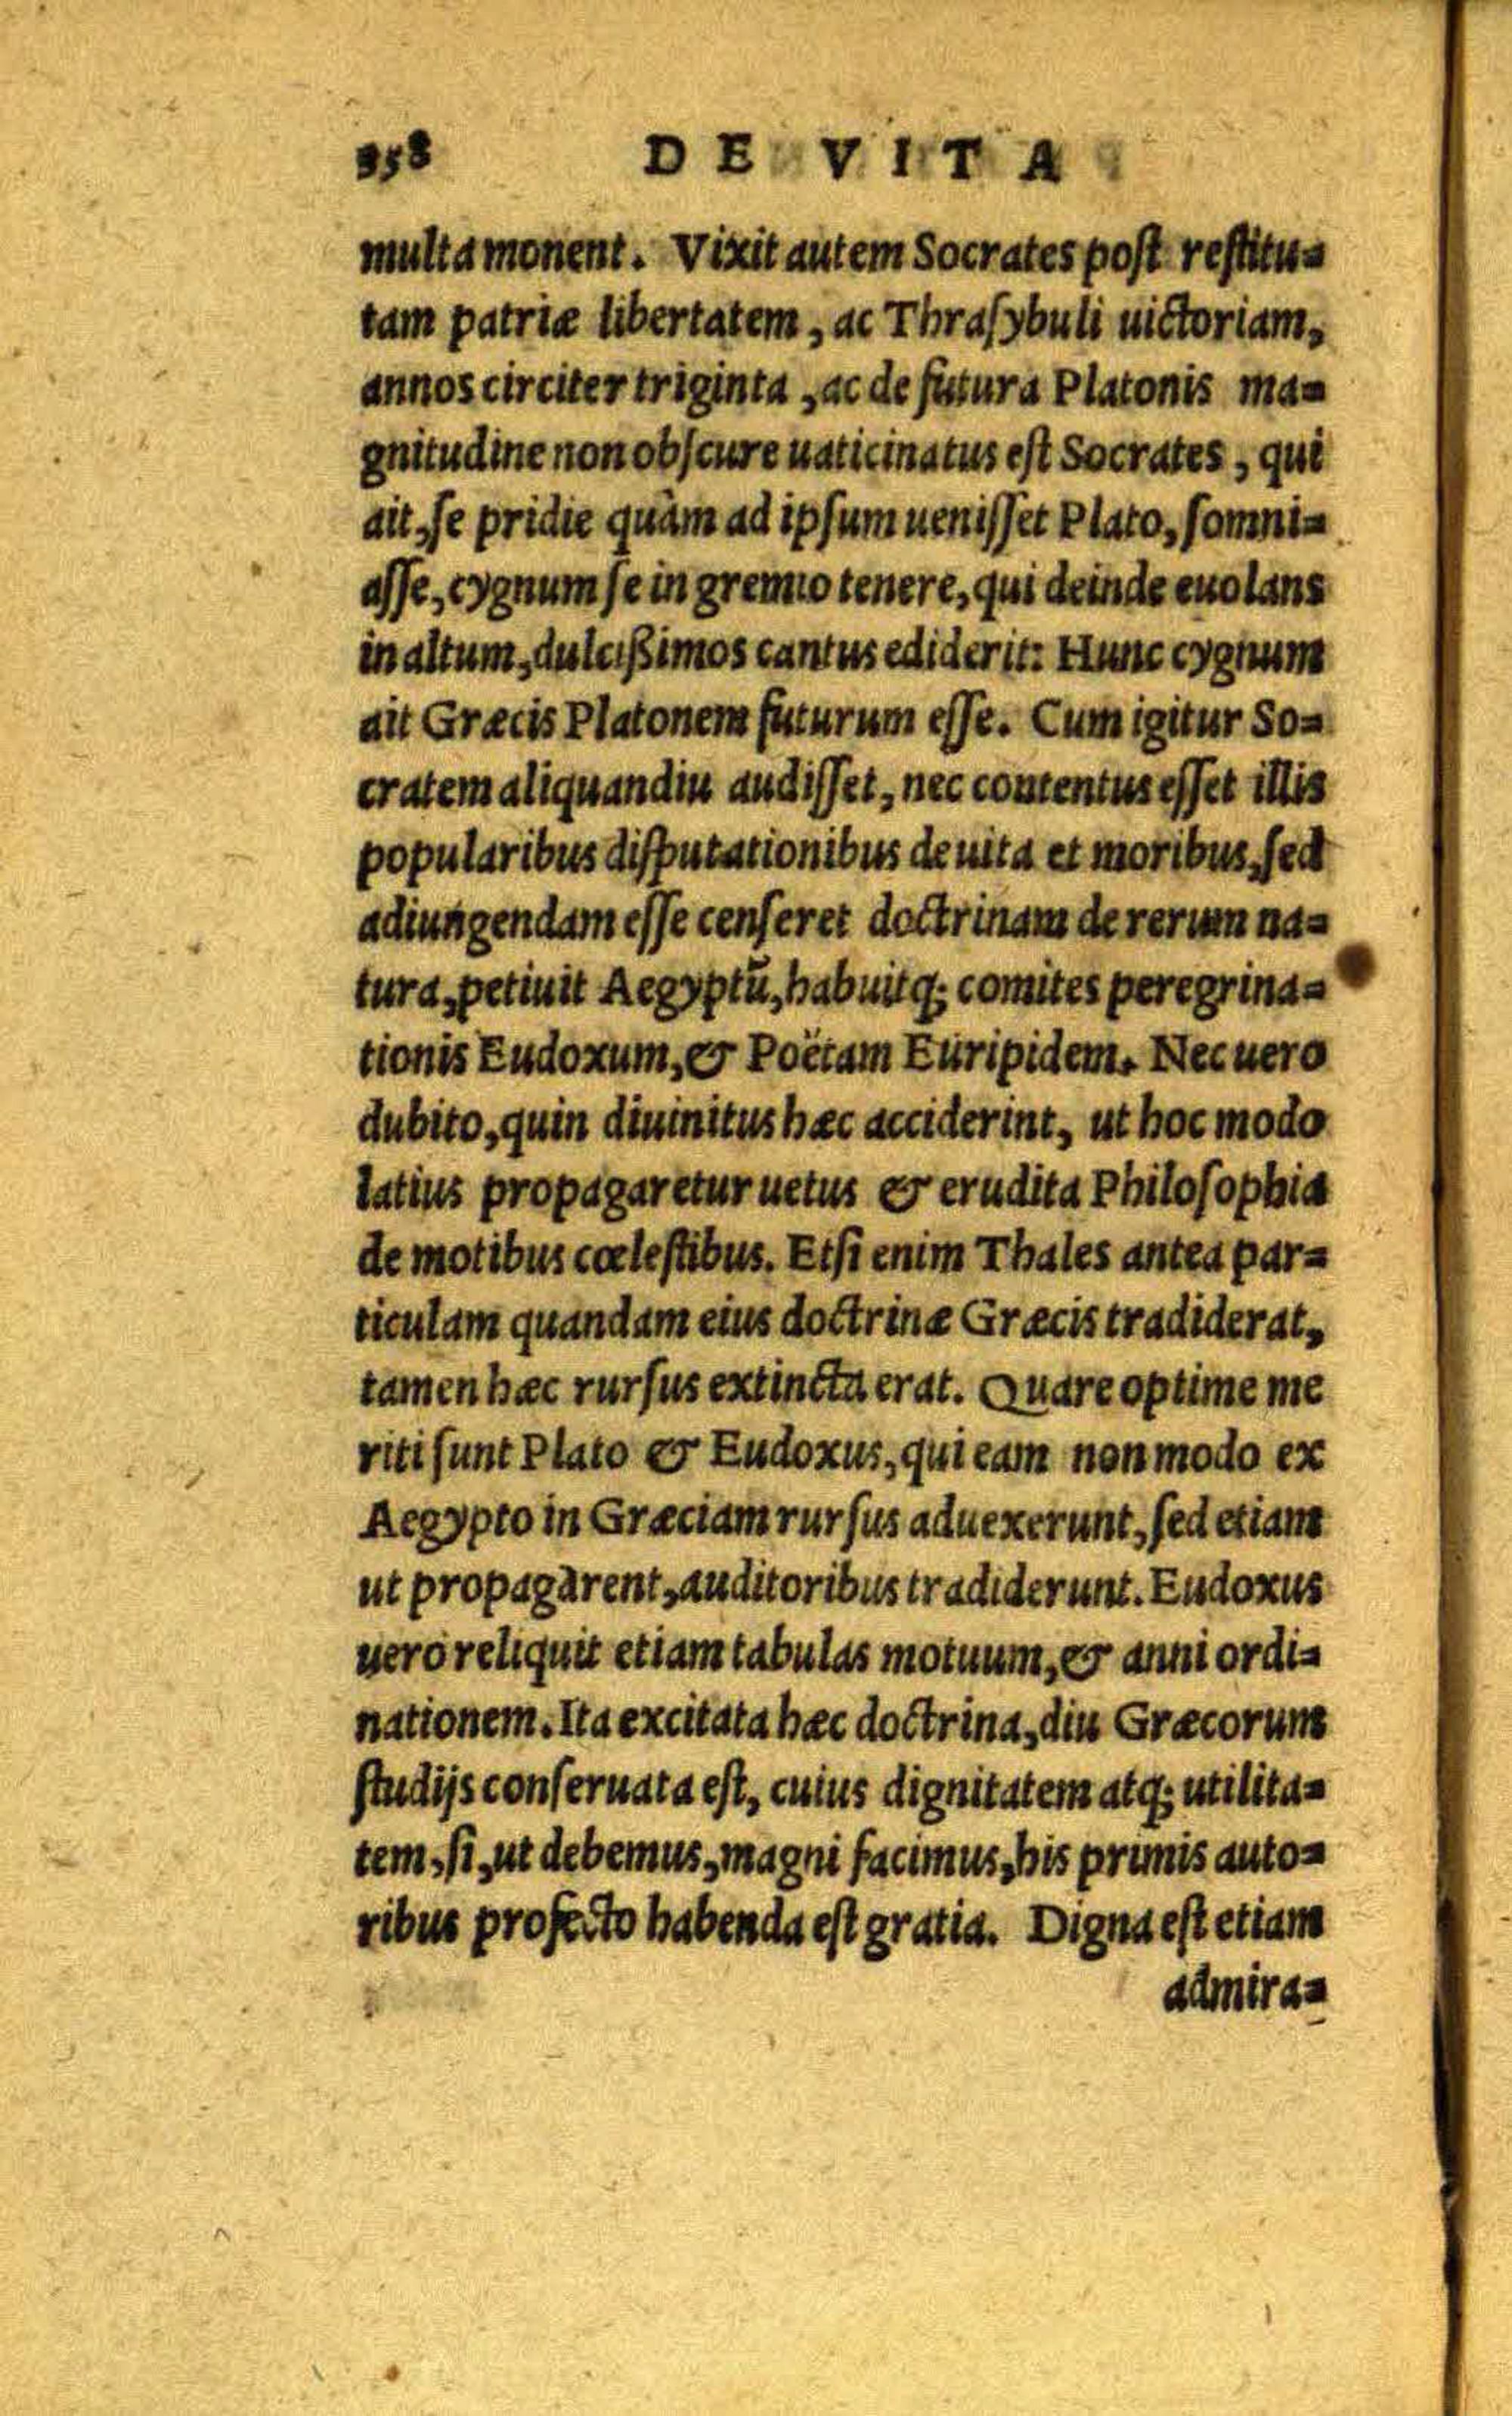 358 DE VITA
multa monent. Vixit autem Socrates post restitu-
tam patriæ libertatem, ac Thrasybuli uictoriam,
annos circiter triginta, ac de futura Platonis ma-
gnitudine non obscure uaticinatus est Socrates, qui
ait, se pridie quàm ad ipsum uenisset Plato, somni-
asse, cygnum se in gremio tenere, qui deinde euolans
in altum, dulcißimos cantus ediderit: Hunc cygnum
ait Græcis Platonem futurum esse. Cum igitur So-
cratem aliquandiu audisset, nec contentus esset illis
popularibus disputationibus de uita et moribus, sed
adiungendam esse censeret doctrinam de rerum na-
tura, petiuit Aegyptũ, habuitq; comites peregrina-
tionis Eudoxum, & Poëtam Euripidem. Nec uero
dubito, quin diuinitus hæc acciderint, ut hoc modo
latius propagaretur uetus & erudita Philosophia
de motibus cœlestibus. Etsi enim Thales antea par-
ticulam quandam eius doctrinæ Græcis tradiderat,
tamen hæc rursus extincta erat. Quare optime me
riti sunt Plato & Eudoxus, qui eam non modo ex
Aegypto in Græciam rursus aduexerunt, sed etiam
ut propagarent, auditoribus tradiderunt. Eudoxus
uero reliquit etiam tabulas motuum, & anni ordi-
nationem. Ita excitata hæc doctrina, diu Græcorum
studijs conseruata est, cuius dignitatem atq; utilita-
tem, si, ut debemus, magni facimus, his primis auto-
ribus profecto habenda est gratia. Digna est etiam
admira-